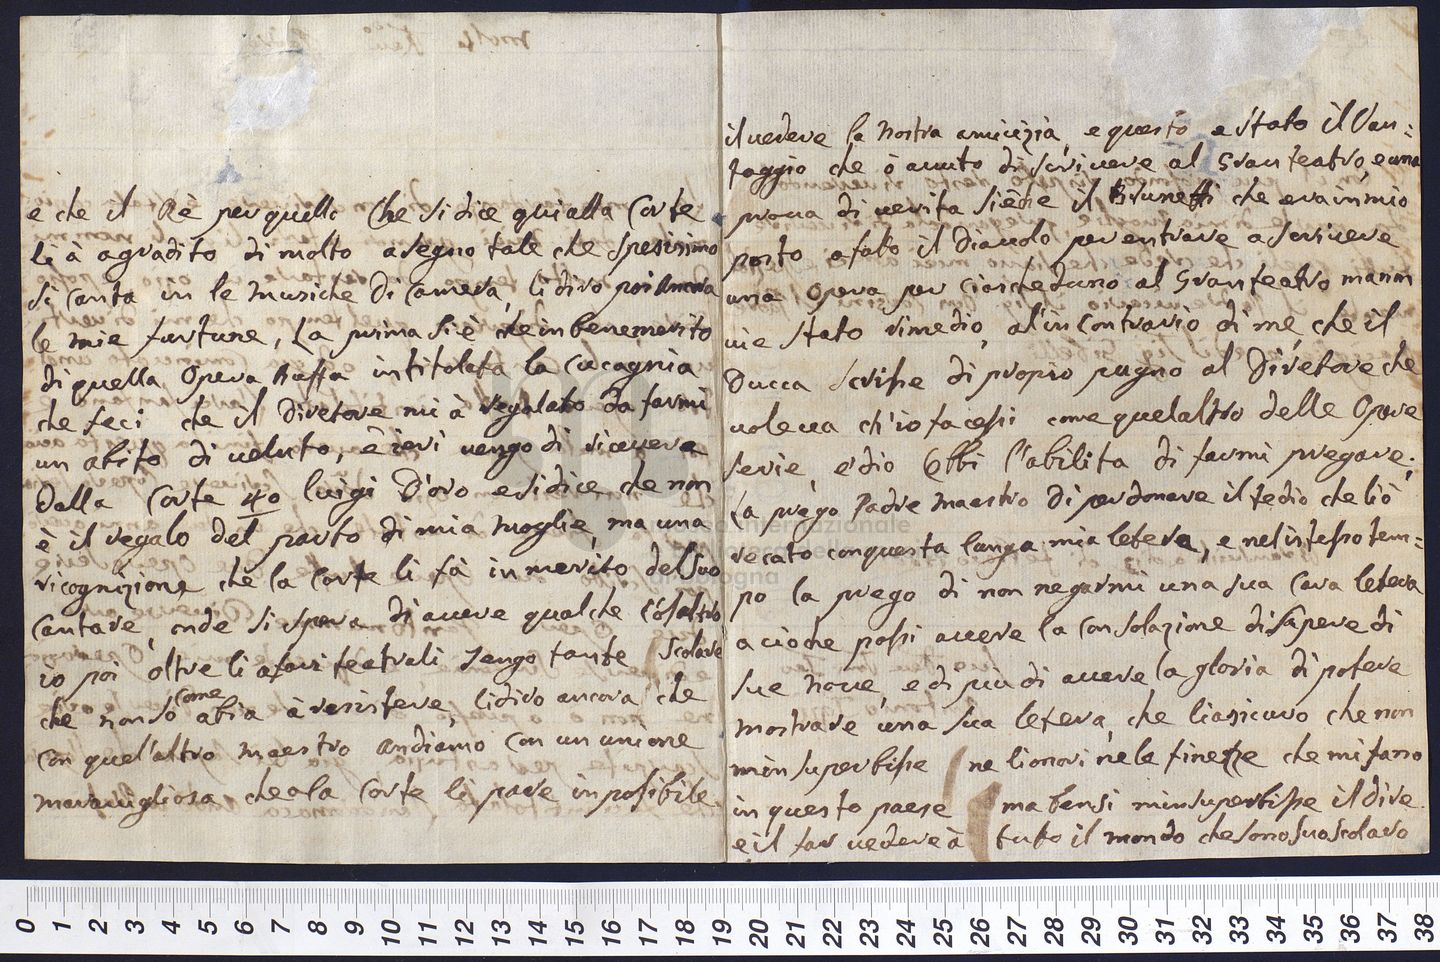 e che il Rè per quello che si dice qui alla Corte
li à agradito di molto a segno tale che spesissimo
si canta in le musiche di Camera, li dirò poi ancora
le mie furtune, La prima si è che in benemerito
di quella Opera Buffa intitolata la Cucagnia
che feci che il Diretore mi à regalato da farmi
un abito di veluto, e ieri vengo di ricevere
dalla Corte 40 luigi D'oro e si dice che non
è il regalo del parto di mia moglie, ma una
ricognizione che la Corte li fà in merito del suo
cantare, onde si spera di avere qualche cosaltro
io poi oltre li afari teatrali tengo tante scolare
che non so come abia à resistere, li dirò ancora che
con quel'altro maestro andiamo con un unione
maravigliosa che a la Corte li pare inposibile
il vedere la nostra amicizia, e questo e stato il van=
taggio che ò auuto di scrivere al Gran teatro, e una
prova di verita siè che il Brunetti che era in mio
posto a fato il Diavolo per entrare a scrivere
una Opera per ciascheduno al Gran teatro ma non
vie stato rimedio, al'incontrario di me, che il
Ducca scrisse di proprio pugno al Diretore che
voleva ch'io facessi come quelaltro delle Opere
serie, ed io ebbi l'abilita di farmi pregare;
La prego Padre Maestro di perdonare il tedio che li ò
recato con questa lunga mia letera, e nel istesso tem=
po la prego di non negarmi una sua cara letera
acioche possi avere la consolazione di sapere di
sue nove, e di più di avere la gloria di potere
mostrare una sua letera, che li asicuro che non
minsuperbisse ne li onori ne le finezze che mi fano
in questo paese ma bensi minsuperbisse il dire
e il far vedere à tutto il mondo che sono suo scolaro